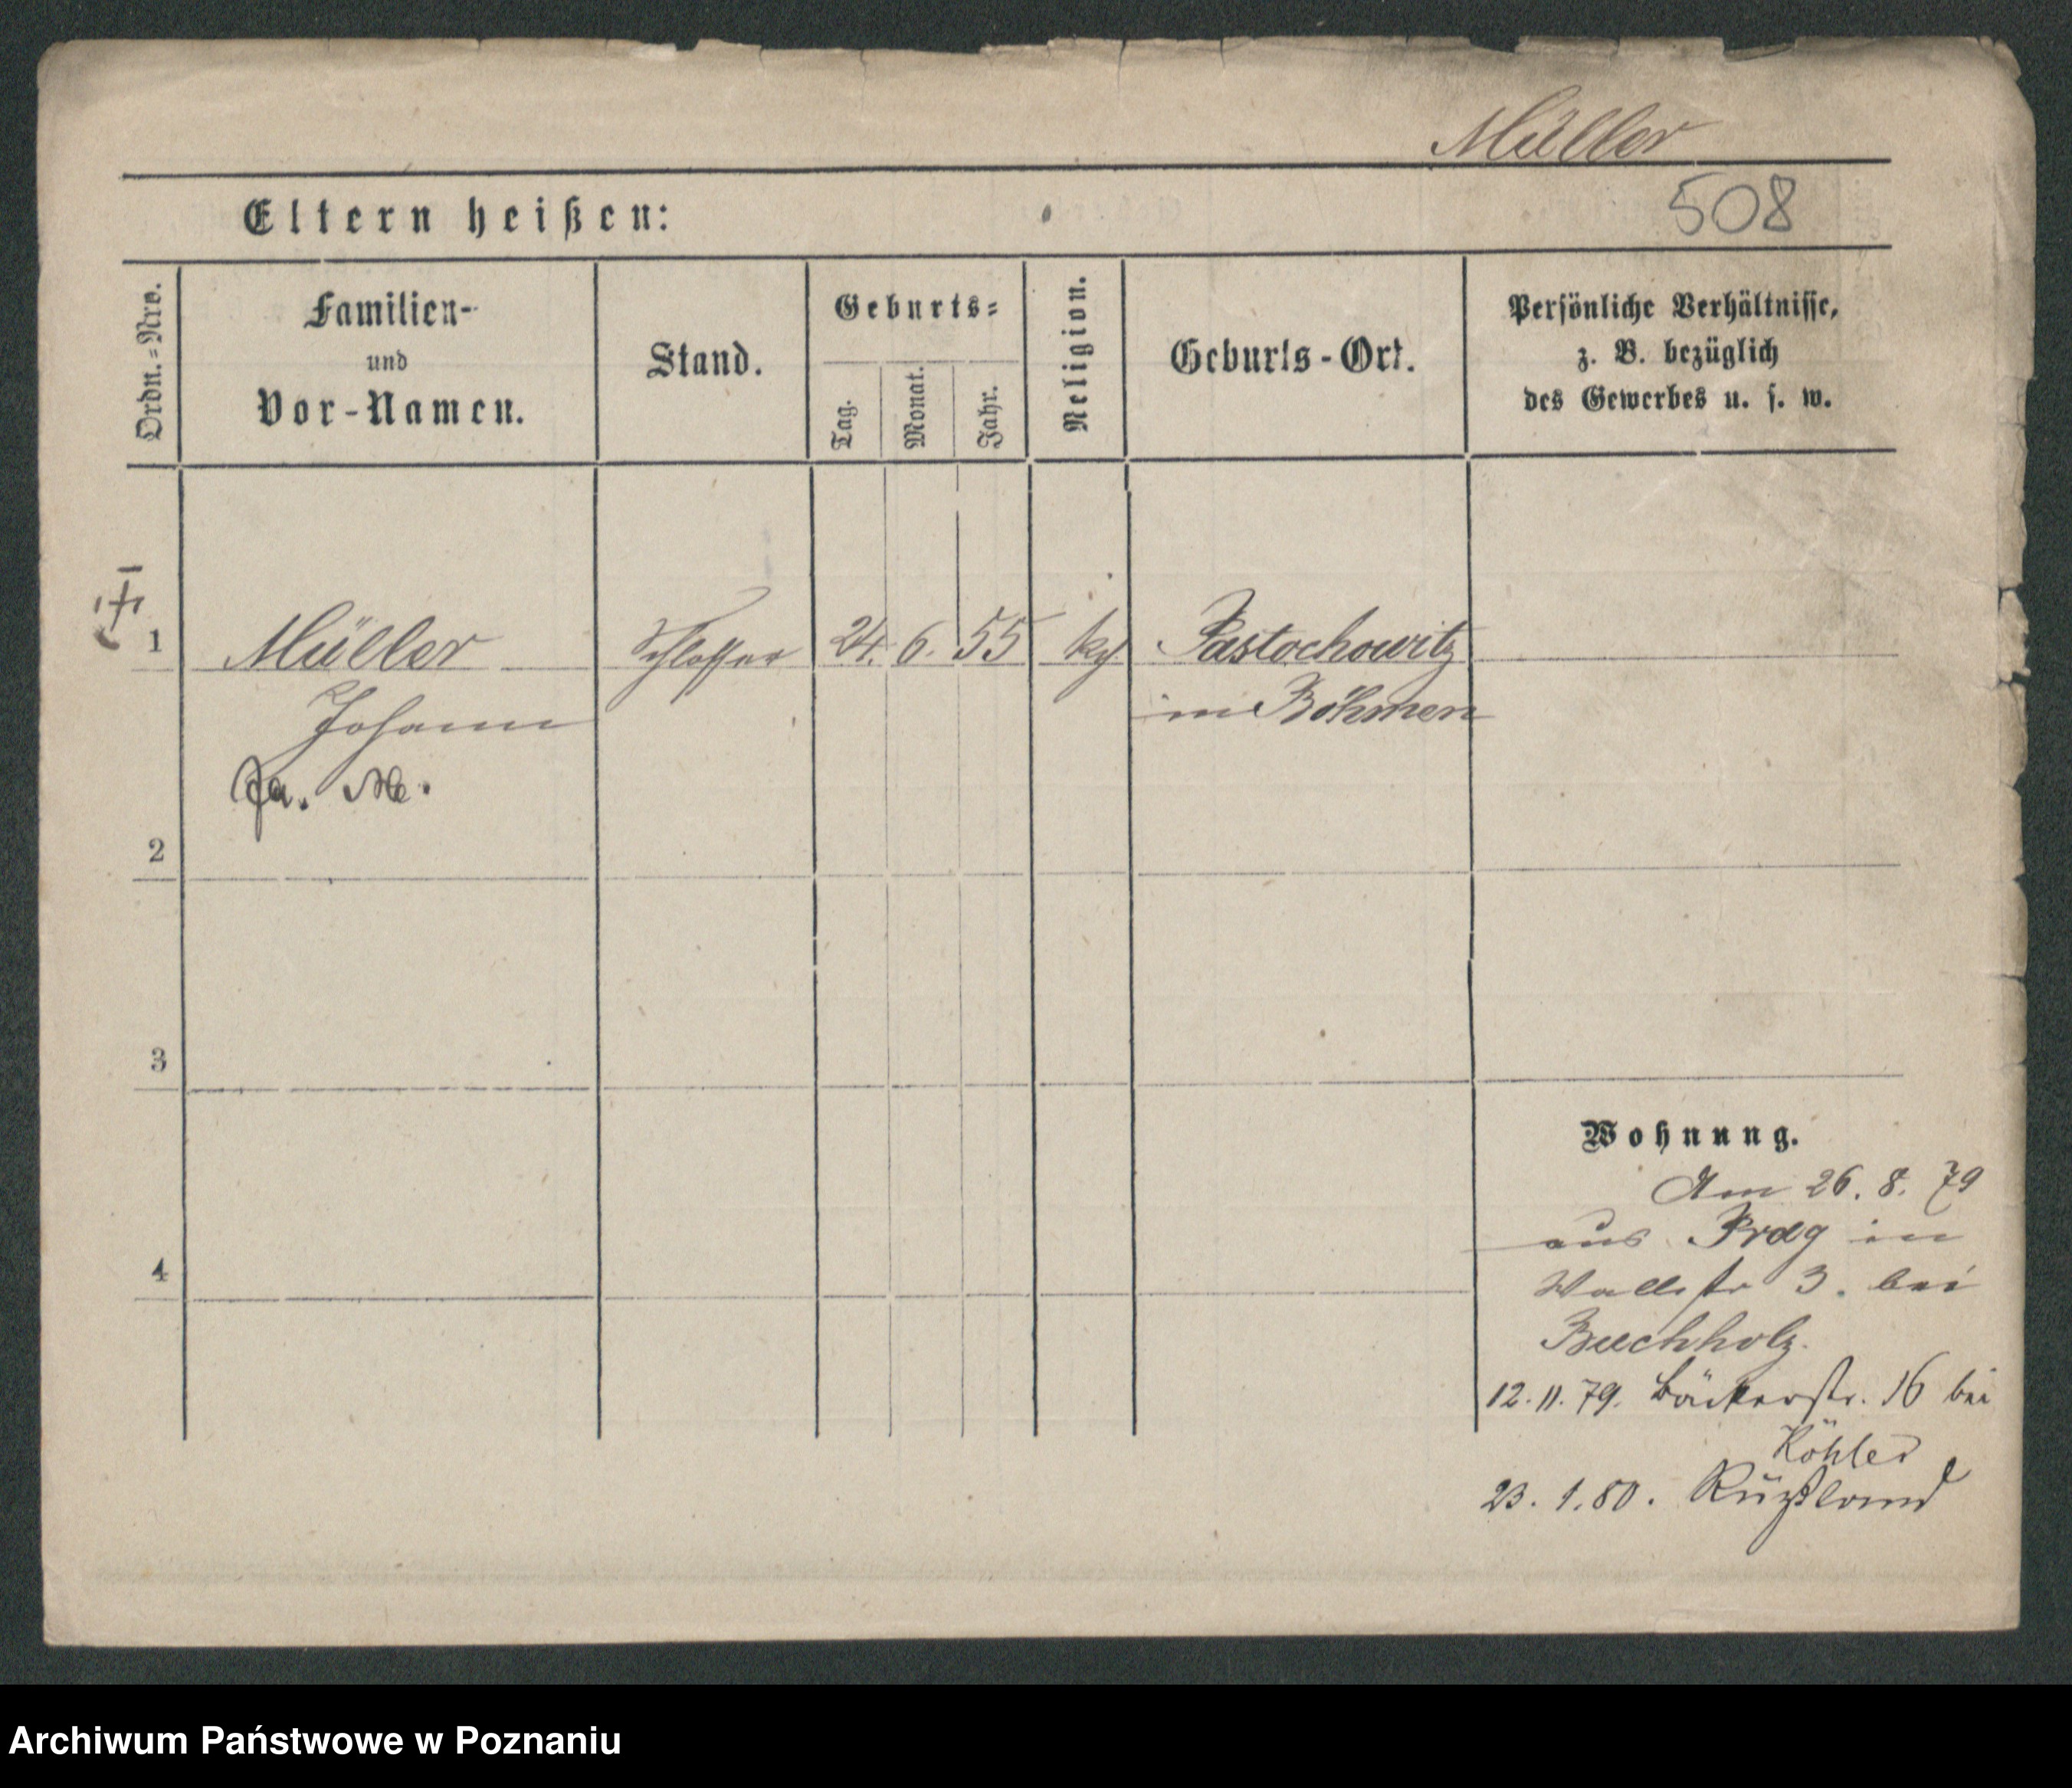 Müller
508
Eltern heißen:
Ordn.=Nro.
Familien-
und
Vor-Namen.
Stand.
Geburts=
Tag.
Monat.
Jahr.
Religion.
Geburts-Ort.
Persönliche Verhältnisse,
z. B. bezüglich
des Gewerbes u. s. w.
1
Müller Schlosser 24. 6. 55 Pastochowitz
Johann in Böhmen
Ja. Me.
2
3
4
Wohnung.
Am 26. 8. 79
aus Prag in
Wallstr 3. bei
Buchholz.
12. 11. 79. Bäckerstr. 16 bei
Köhler
23. 1. 80. Rußland
Archiwum Państwowe w Poznaniu